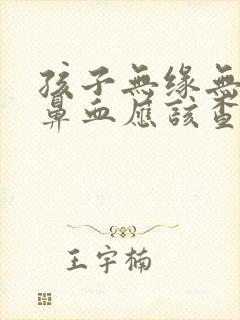 孩子無缘無
鼻血應該查
王宇楠